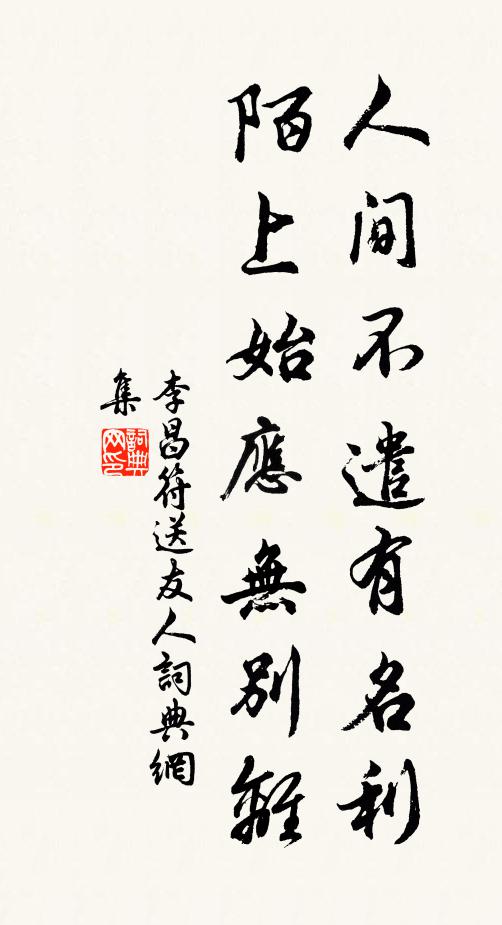 人间不遣有名利
陌上始應無別離
李昌符送友人詞典網
集
詞典
网印